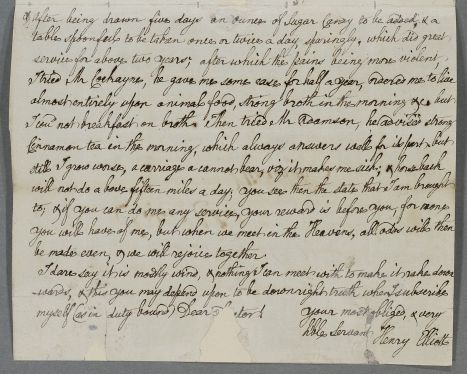 After being drawn five days an ounce of Sugar Candy to be added, & a
table spoonfull to be taken once or twice a day sparingly, which did great
service for above two years; after which the pains being more violent,
I tried Mr Cochayne, he gave me some ease for half a year, ordered me to live
almost entirely upon animal food, strong broth in the morning &c but
I cou'd not breakfast on broth. Then tried Mr Adamson, he advised strong
Cinnamon tea in the morning, which always answers well for its part. but
still I grow worse, a carriage a cannot bear, viz it makes me sick, & horseback
will not do above fifteen miles a day; you see then the state that I am brought
to, & if you can do me any service, your reward is before you, for more
you will have of me, but when we meet in the Heavens, all odds will then
be made even, & we will rejoice together.
I dare say it is mostly wind, & nothing I can meet with to make it rake down
wards, & this you may depend upon to be downright truth when I subscribe
myself (as in duty bound) Dear tor!
your most obliged, & very
hble servant Henry Elliott